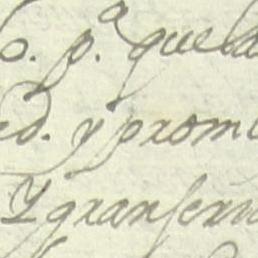 o. p.ª que la
ed. y prom
Y gran seru